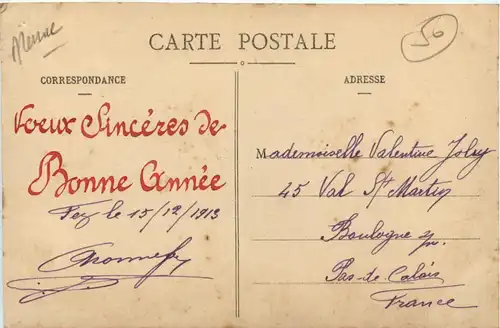 Maroc
50
CARTE POSTALE
CORRESPONDANCE
ADRESSE
Voeux Sincères de
Bonne Année
Fez le 15/12/1913
Mademoiselle Valentine Joly
45 Val St Martin
Boulogne s/m
Pas-de-Calais
France